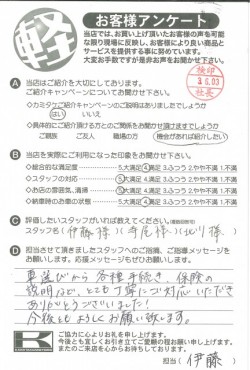 軽
お客様アンケート
当店では、お買い上げ頂いたお客様の声を可能
な限り現場に反映し、お客様により良い商品と
サービスを提供する事に努めています。
大変お手数ですが是非お声をお聞かせ下さい。
検印
社長
A 当店はご紹介を大切にしております。
ご紹介キャンペーンについてお聞かせ下さい。
◇カミタケご紹介キャンペーンのご説明はありましたでしょうか
はい いいえ
◇具体的にご紹介頂ける方とのご関係をお聞かせ頂けますでしょうか
ご親族 ご友人 職場の方 機会があれば紹介したい
B 当店を実際にご利用になった印象をお聞かせ下さい。
◇総合的な満足度 5.大満足 4.満足 3.ふつう 2.やや不満 1.不満
◇スタッフの対応 5.大満足 4.満足 3.ふつう 2.やや不満 1.不満
◇お店の雰囲気、清掃 5.大満足 4.満足 3.ふつう 2.やや不満 1.不満
◇納車時のお車の状態 5.大満足 4.満足 3.ふつう 2.やや不満 1.不満
C 評価したいスタッフがいれば教えてください。(複数回答可)
スタッフ名 (伊藤様)(寺尾様)(北川様)
D 担当させて頂きましたスタッフへのご感想、ご指導メッセージを
お願いします。応援メッセージもぜひお願いします。
車選びから各種手続き、保険の
説明など、とても丁寧にご対応いただき
ありがとうございました!
今後もよろしくお願い致します。
K
ご協力に心よりお礼を申し上げます。
今後とも宜しくお引き立てご愛顧の程お願い申し上げます。
またのご来店を心からお待ちしております。
担当( 伊藤 )